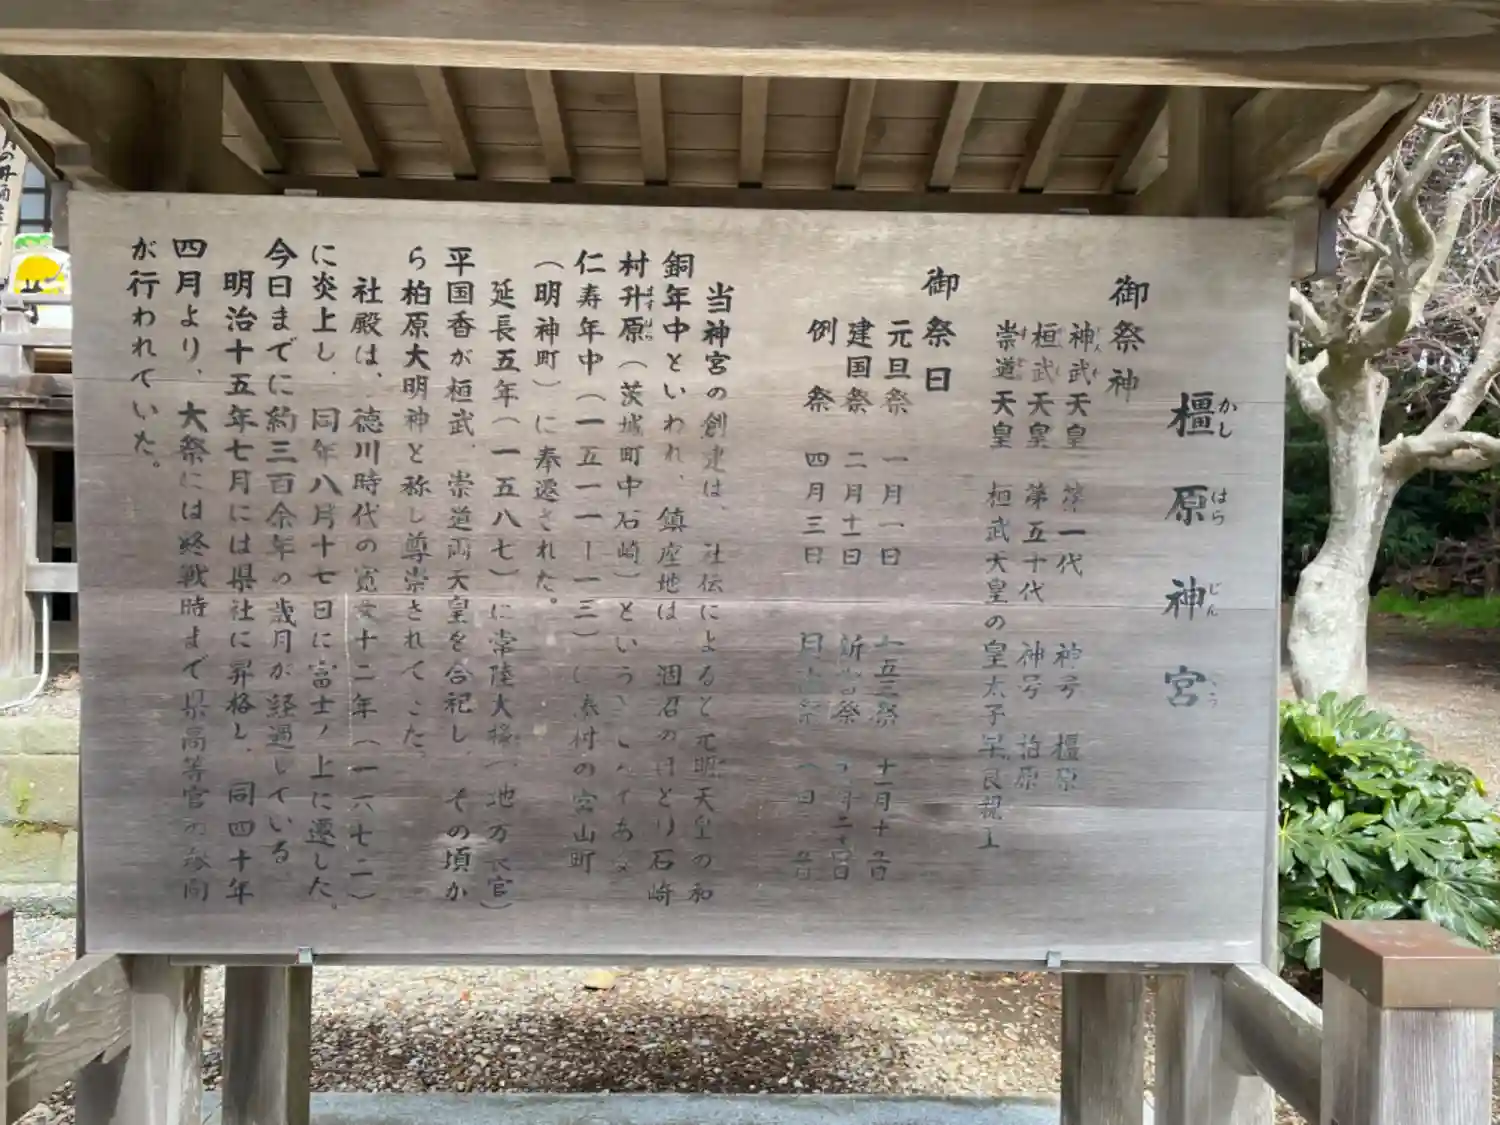 橿原神宮
かし はら じん ぐう
御祭神
神武天皇 第一代 神号 橿原
桓武天皇 第五十代 神号 柏原
崇道天皇 桓武天皇の皇太子早良親王
御祭日
元旦祭 一月一日 七五三祭 十一月十五日
建国祭 二月十一日 新嘗祭 十一月二十三日
例祭 四月三日 月次祭 一日 十五日
当神宮の創建は、社伝によると元明天皇の和
銅年中といわれ、鎮座地は 涸沼のほとり石崎
村升原（茨城町中石崎）という
仁寿年中（ 村の宮山町
（明神町）に奉遷された。
延長五年（一五八七）に常陸大掾（地方長官）
平国香が桓武、崇道両天皇を合祀し、その頃か
ら柏原大明神と称し尊崇されてきた。
社殿は、徳川時代の寛文十二年（一六七二）
に炎上し、同年八月十七日に富士ノ上に遷した。
今日までに約三百余年の歳月が経過している。
明治十五年七月には県社に昇格し、同四十年
四月より、大祭には終戦時まで県高等官の参向
が行われていた。